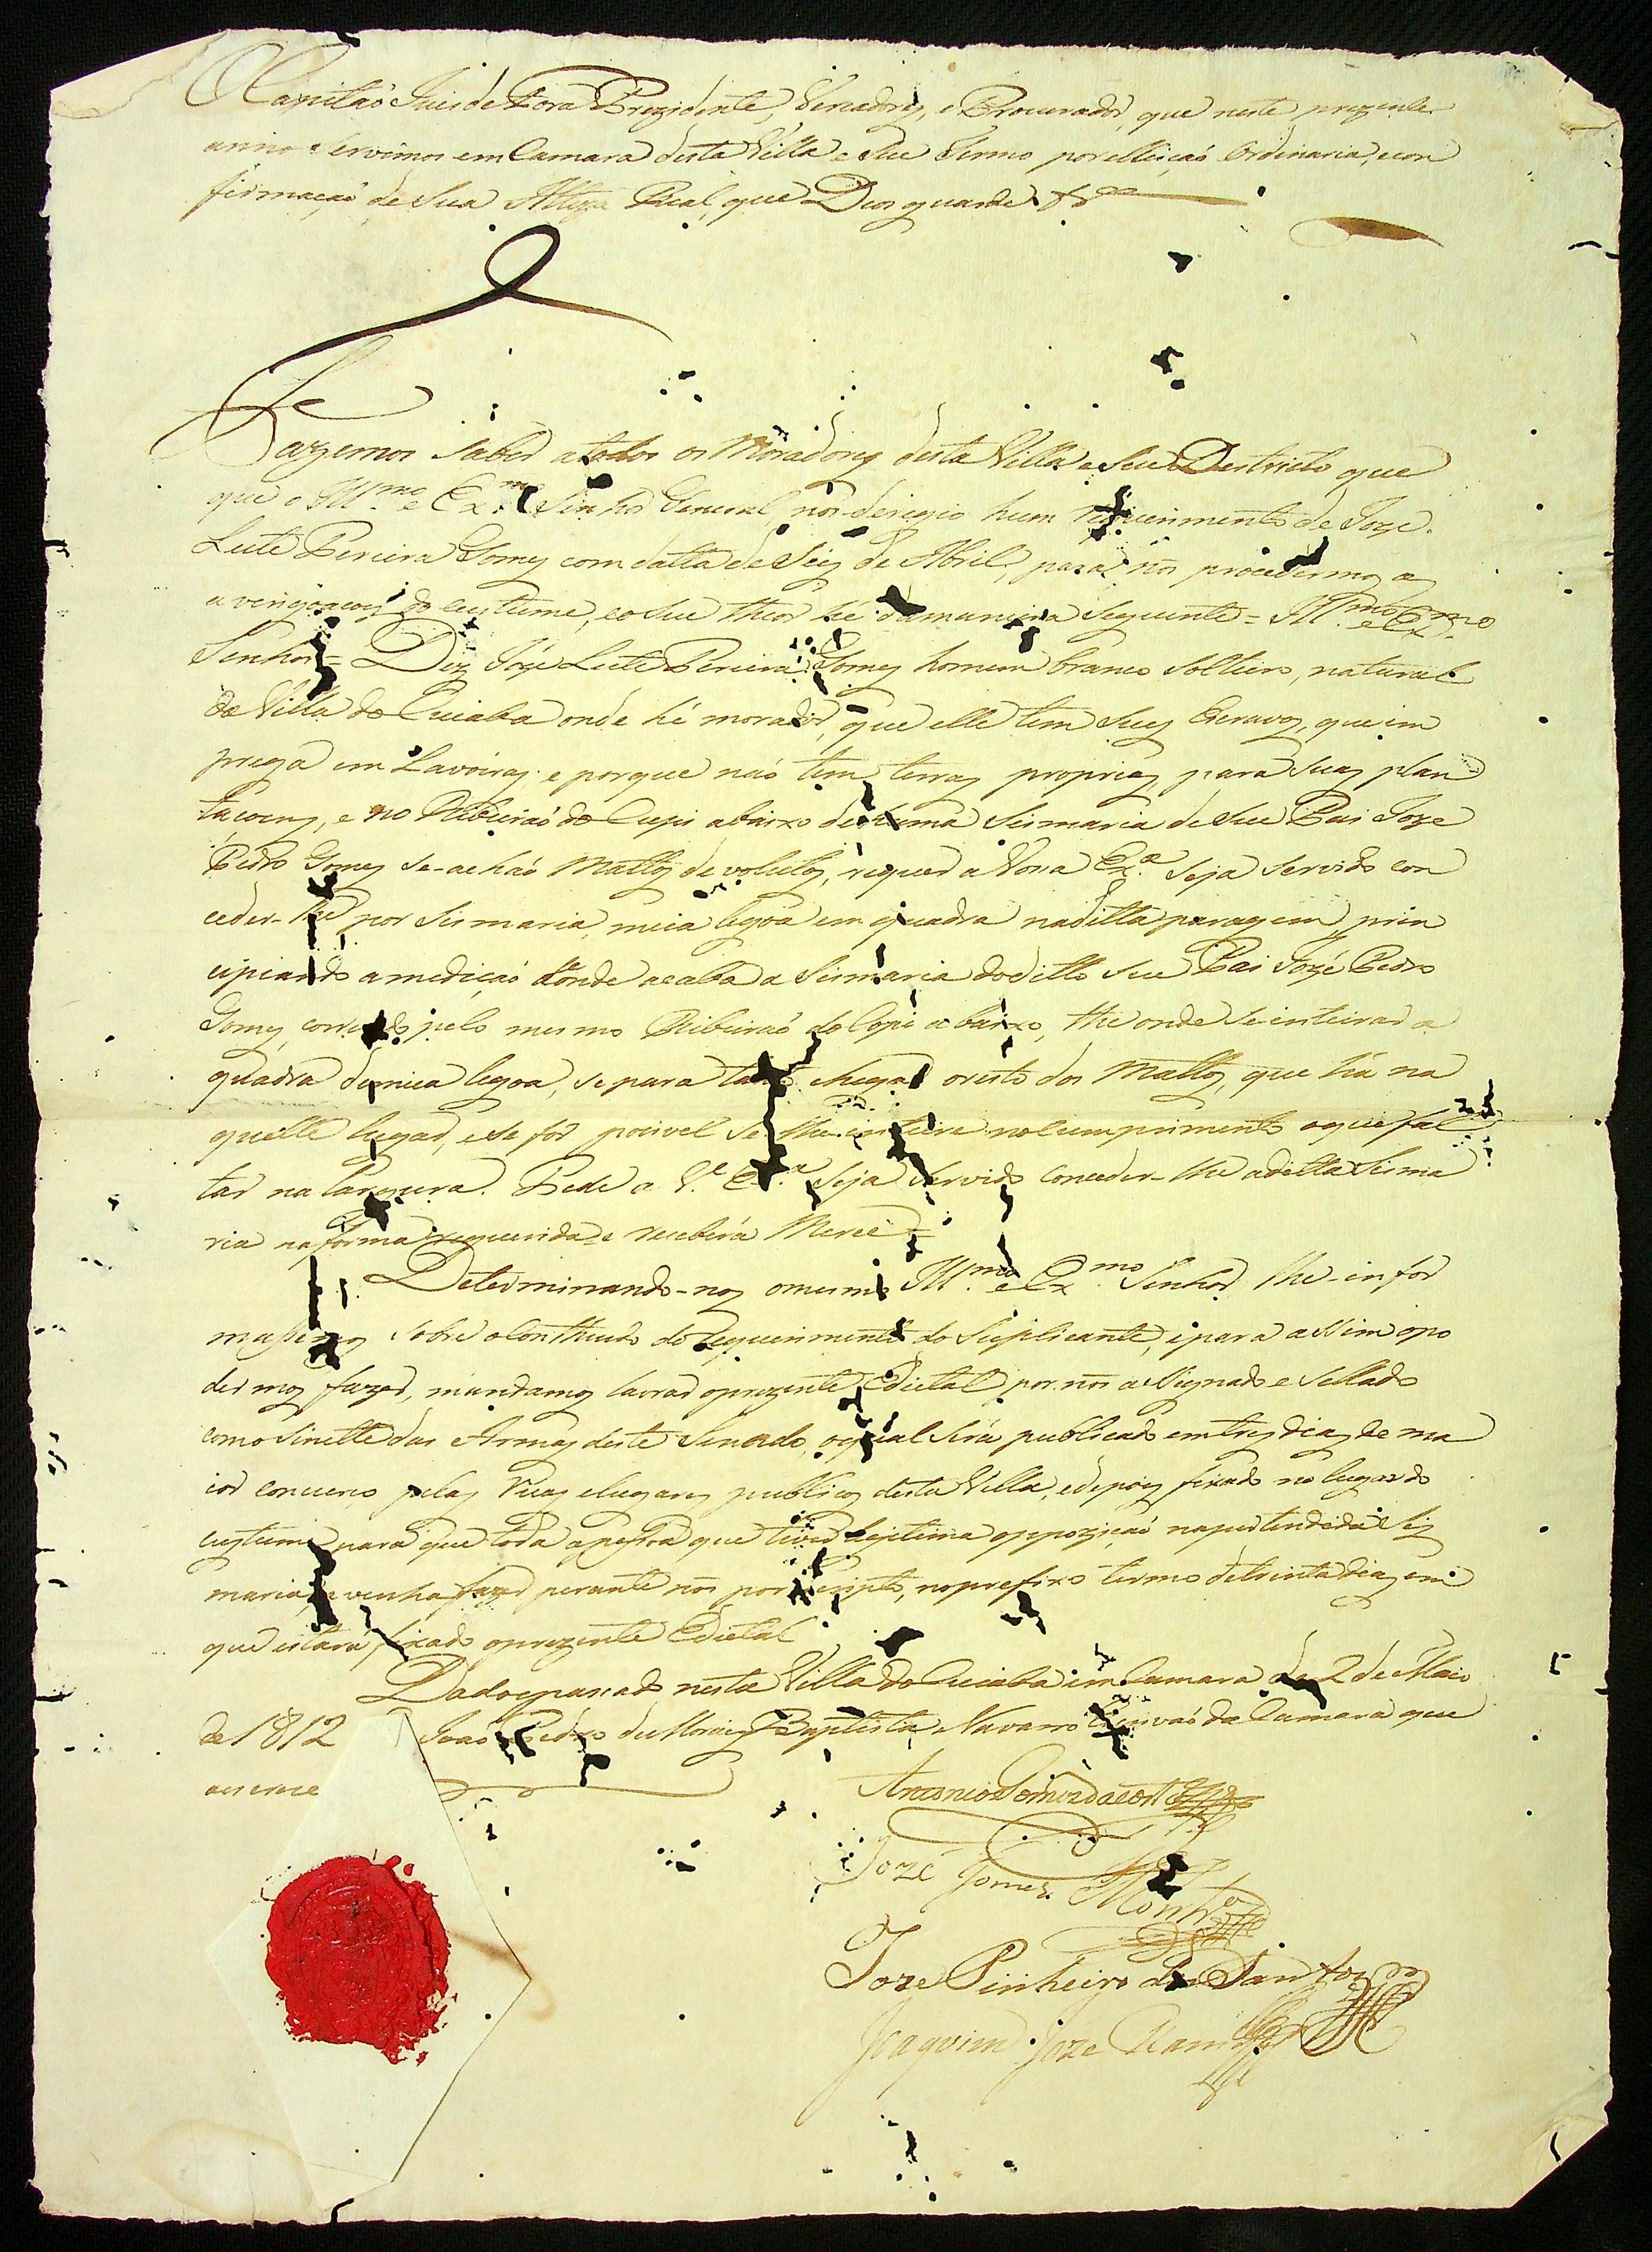 O Capitaõ Juis de Fora Prezidente, Veriadores, e Procurador, que neste prezente
anno servimos em Camara desta Villa e seu Termo por elleiçaõ Ordinaria, e con
firmaçaõ de Sua Alteza Real, que Deos guarde &ª
Fazemos saber a todos os Moradores desta Villa e seu Destricto que
que o Illmo. e Exmo. Senhor General nos derigio hum requerimento de Joze
Leite Pereira Gomes com datta de Seis de Abril, para nós procedermos as
aviriguacoens do custume, e o seu theor hé da maneira seguinte = Illmo. e Exmo.
Senhor = Diz Joze Leite Pereira Gomes homem branco solteiro, natural
da Villa do Cuiaba onde hé morador, que elle tem seus Escravos, que im
prega em Lavoiras; e porque naõ tem terras proprias para suas plan
tacoens, e no Ribeiraõ do Cupi abaixo de huma Sismaria de seu Pai Joze
Pedro Gomes se-achaõ Mattos devolutos, requer a Vossa Exª. seja servido con
ceder-lhe por Sismaria meia legoa em quadra na ditta paragem, prin
cipiando a mediçaõ donde acaba a Sismaria do ditto seu Pai Jozé Pedro
Gomes, correndo pelo mesmo Ribeiraõ do Copi abaixo, the onde se inteirar a
quadra de meia legoa, se para tanto chegar o resto dos Mattos, que há na
quelle lugar, e se for pocivel se lhe inteire no cumprimento o que fal
tar na largura. Pede a Vª. Exª. seja servido conceder-lhe a ditta Sisma
ria na forma requerida e receberá Mercê =
Determinando-nos o mesmo Illmo. e Exmo. Senhor lhe-infor
massemos sobre o Conthiudo do requerimento do Suplicante, e para assim o po
dermos fazer, mandamos lavrar o prezente Edictal por nós assignado e Sellado
com o Sinette das Armas deste Senado, o qual será publicado em tres dias de ma
ior concurso pelas Ruas e lugares publicos desta Villa, e depois fixado no lugar do
custume para que toda a pessoa que tiver legitima oppoziçaõ na pertendida Sis
maria, a venha fazer perante nós por escripto, no prefixo termo de trinta dias em
que estará fixado o prezente Edictal
Dado e passado nesta Villa do Cuiaba em Camara de 2 de Maio
de 1812 Joaõ Pedro de Moraes Baptista Navarro Escrivaõ da Camara que
o escrevi
Antonio
Jozé Gomes Montrº
Joze Pinheiro dos Santos
Joaquim Joze Ramos